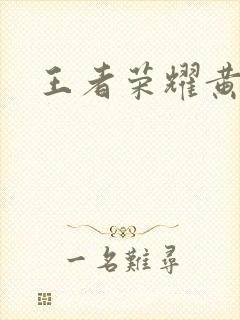 王者荣耀黄
一名難尋